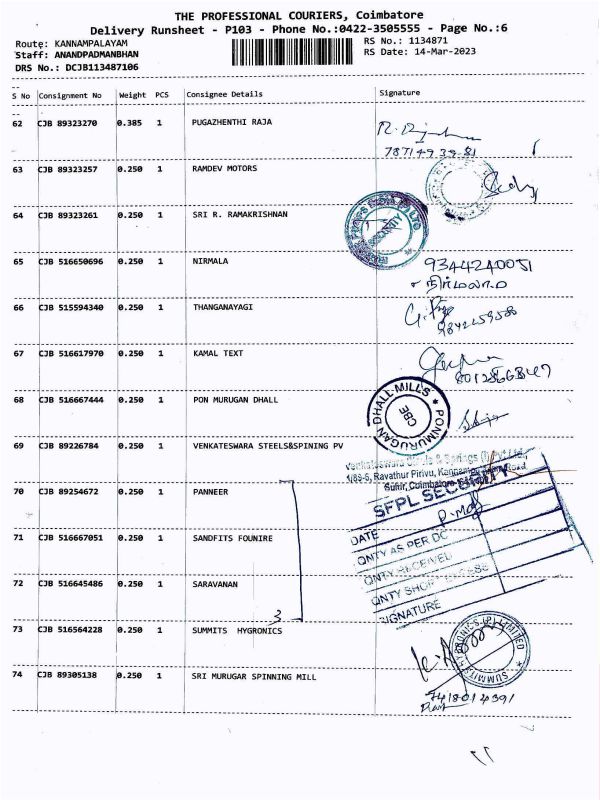 THE PROFESSIONAL COURIERS, Coimbatore
Delivery Runsheet - P103 - Phone No.:0422-3505555 - Page No.:6
Route: KANNAMPALAYAM
RS No.: 1134871
Staff: ANANDPADMANBHAN
RS Date: 14-Mar-2023
DRS No.: DCJB113487106
S No Consignment No Weight PCS Consignee Details Signature
62 CJB 89323270 0.385 1 PUGAZHENTHI RAJA
63 CJB 89323257 0.250 1 RAMDEV MOTORS
64 CJB 89323261 0.250 1 SRI R. RAMAKRISHNAN
SECURITY
65 CJB 516650696 0.250 1 NIRMALA
9344240051
நிர்மலா
66 CJB 515594340 0.250 1 THANGANAYAGI
67 CJB 516617970 0.250 1 KAMAL TEXT
68 CJB 516667444 0.250 1 PON MURUGAN DHALL
PONMURUGAN DHALL MILLS
CBE
69 CJB 89226784 0.250 1 VENKATESWARA STEELS&SPINING PV
Venkateswara Steels & Springs (I) Pvt Ltd.,
1/89-6, Ravathur Pirivu, Kannampalayam Road,
Sulur, Coimbatore
70 CJB 89254672 0.250 1 PANNEER
SFPL SECURITY
71 CJB 516667051 0.250 1 SANDFITS FOUNIRE
DATE
QNTY AS PER DC
QNTY RECEIVED
72 CJB 516645486 0.250 1 SARAVANAN
QNTY SHORT / EXCESS
SIGNATURE
3
73 CJB 516564228 0.250 1 SUMMITS HYGRONICS
SUMMITS HYGRONICS (P) LIMITED
74 CJB 89305138 0.250 1 SRI MURUGAR SPINNING MILL
7418014391